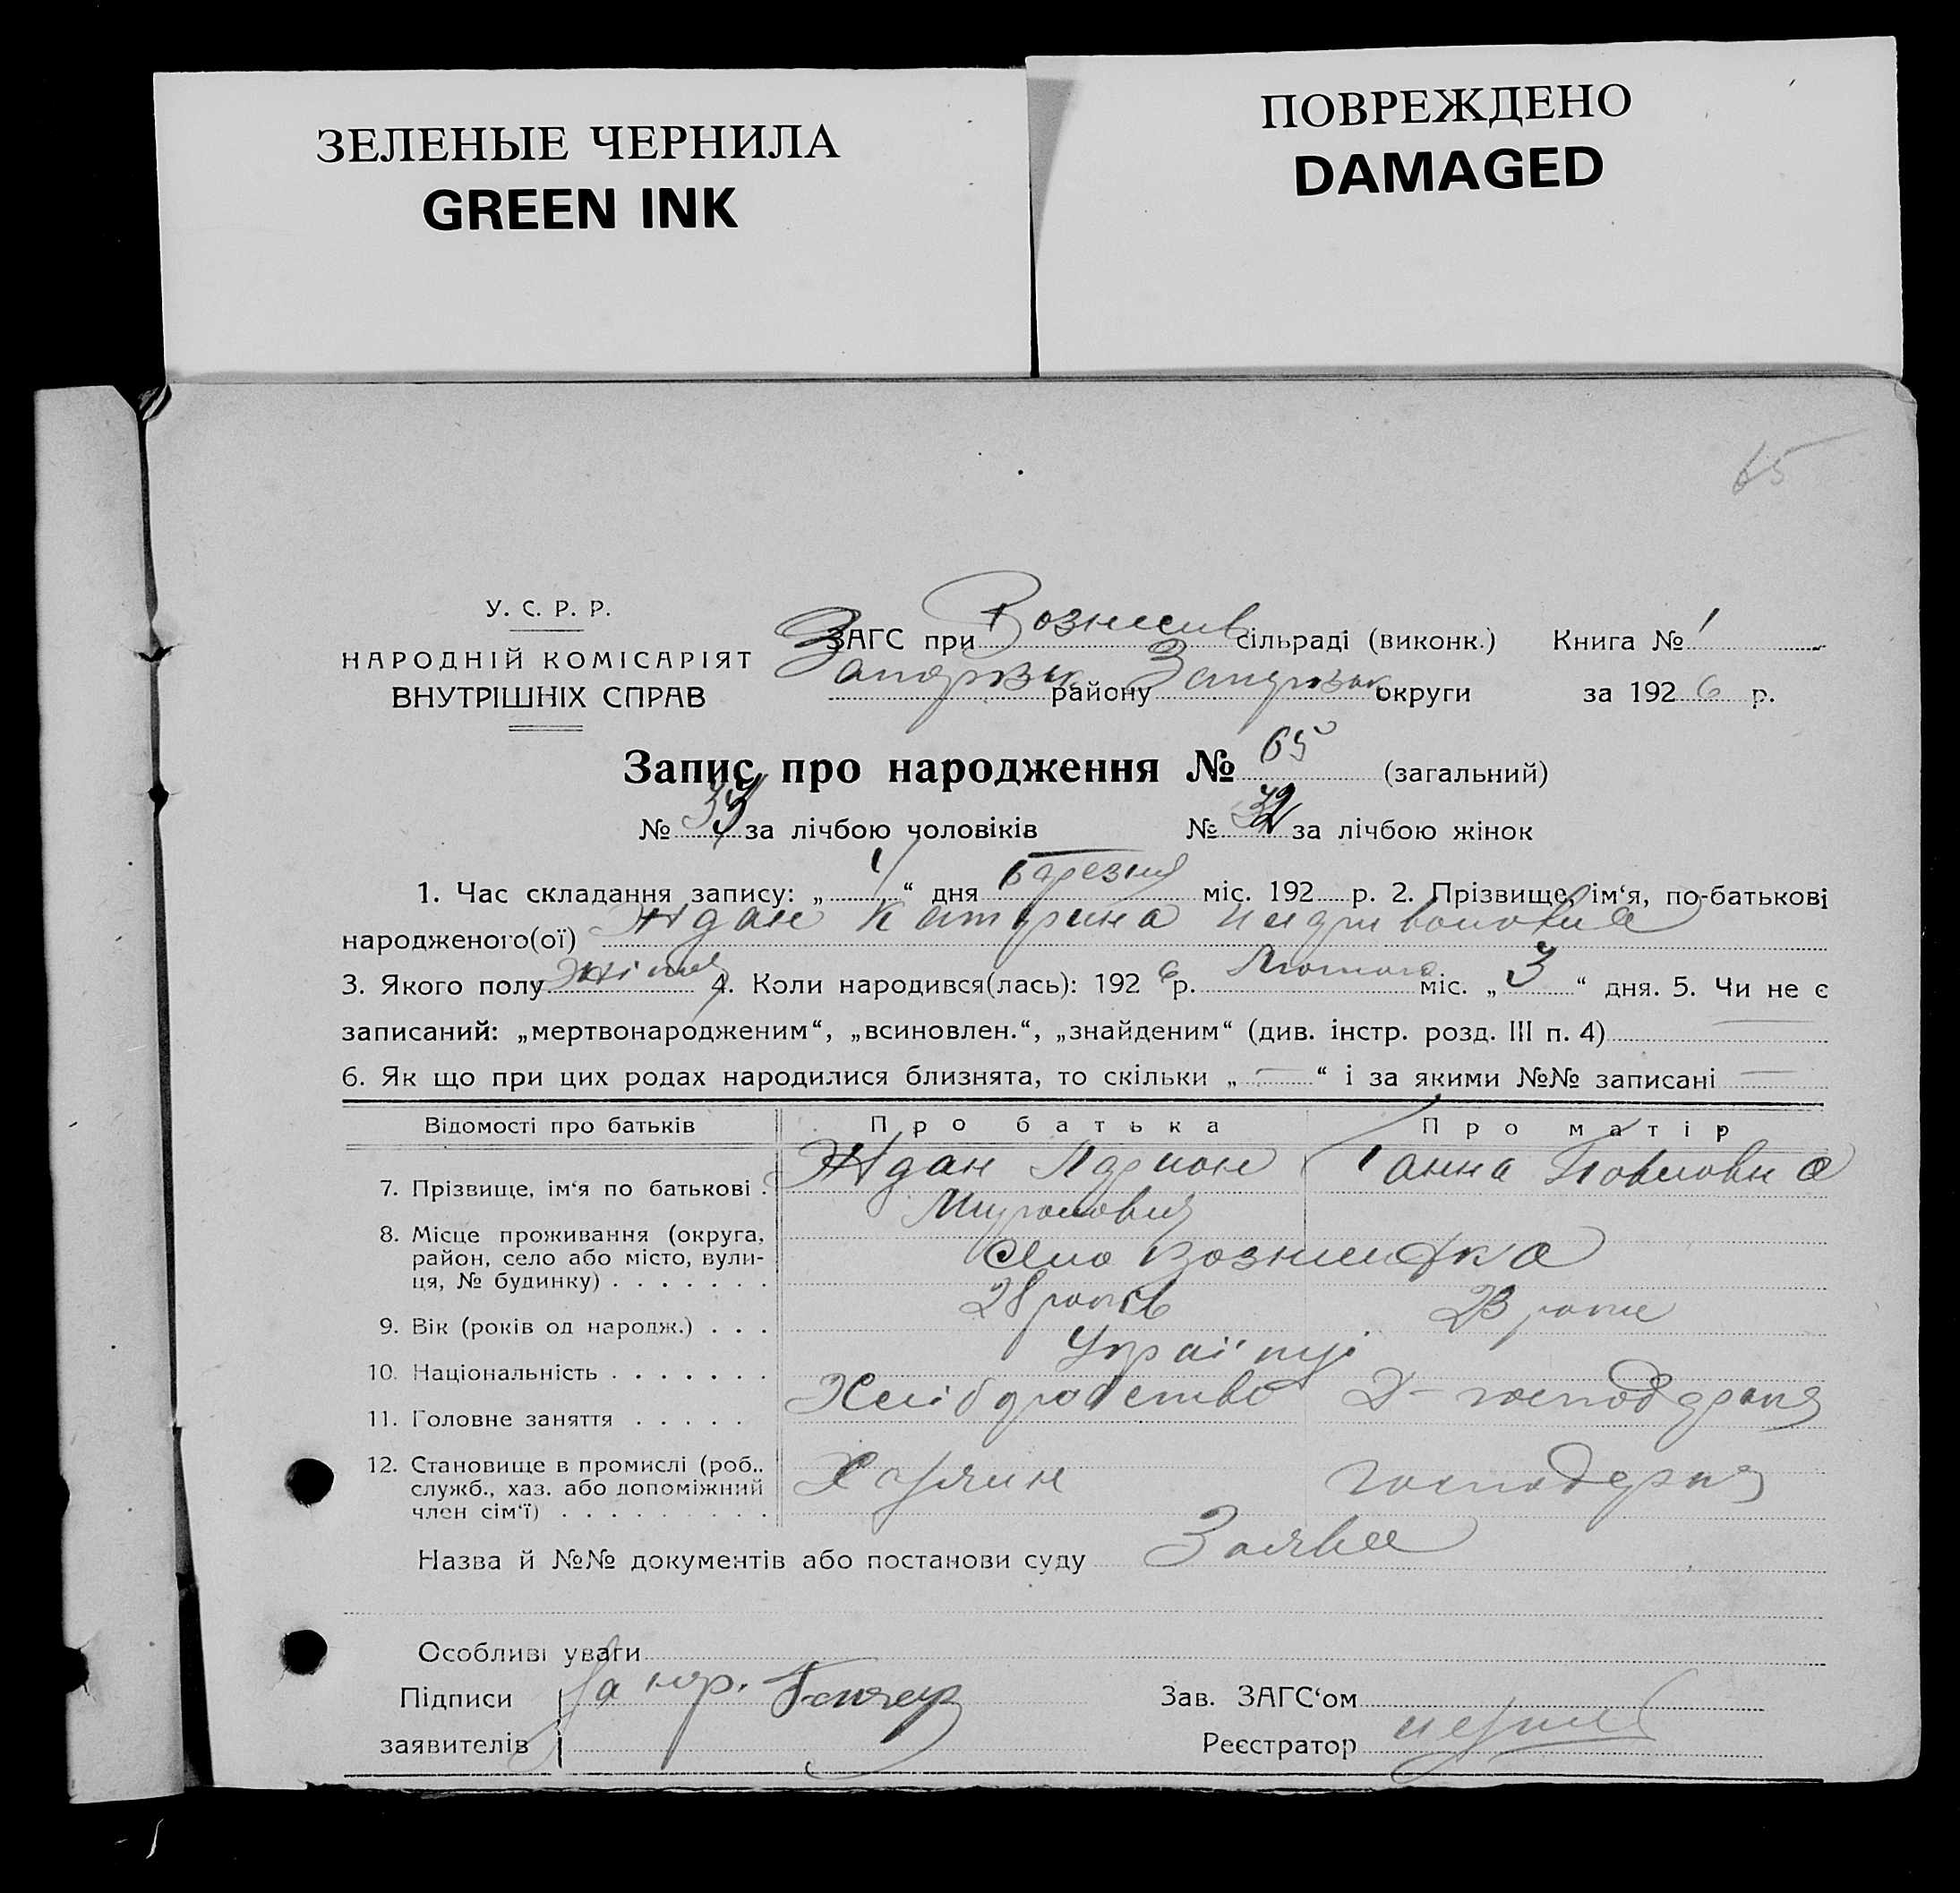 ЗЕЛЕНЫЕ ЧЕРНИЛА
GREEN INK
ПОВРЕЖДЕНО
DAMAGED
65
У. С. Р. Р.
НАРОДНІЙ КОМІСАРІЯТ
ВНУТРІШНІХ СПРАВ
ЗАГС при Вознесив сільраді (виконк.) Книга № 1
Запорізьк району Запорізьк округи за 1926 р.
Запис про народження № 65 (загальний)
№ 33 за лічбою чоловіків № 32 за лічбою жінок
1. Час складання запису: „ 1 “ дня березня міс. 192 р. 2. Прізвище, ім‘я, по-батькові
народженого(ої) Ждан Катрина
3. Якого полу Жіноч 4. Коли народився(лась): 1926 р. Лютого міс. „ 3 “ дня. 5. Чи не є
записаний: „мертвонародженим“, „всиновлен.“, „знайденим“ (див. інстр. розд. III п. 4) —
6. Як що при цих родах народилися близнята, то скільки „ — “ і за якими №№ записані —
Відомості про батьків Про батька Про матір
7. Прізвище, ім‘я по батькові . Ждан Ядрион Ганна Павловна
8. Місце проживання (округа,
район, село або місто, вули-
ця, № будинку) . . . . . . . Село Вознесенка
9. Вік (років од народж.) . . . 28 років 23 роки
10. Національність . . . . . . . Українці
11. Головне заняття . . . . . Хліборобство Д-господарка
12. Становище в промислі (роб.,
служб., хаз. або допоміжний
член сім‘ї) . . . . . . . . . Хазяин господарка
Назва й №№ документів або постанови суду Заява
Особливі уваги
Підписи За нар.
заявителів
Зав. ЗАГС‘ом
Реєстратор